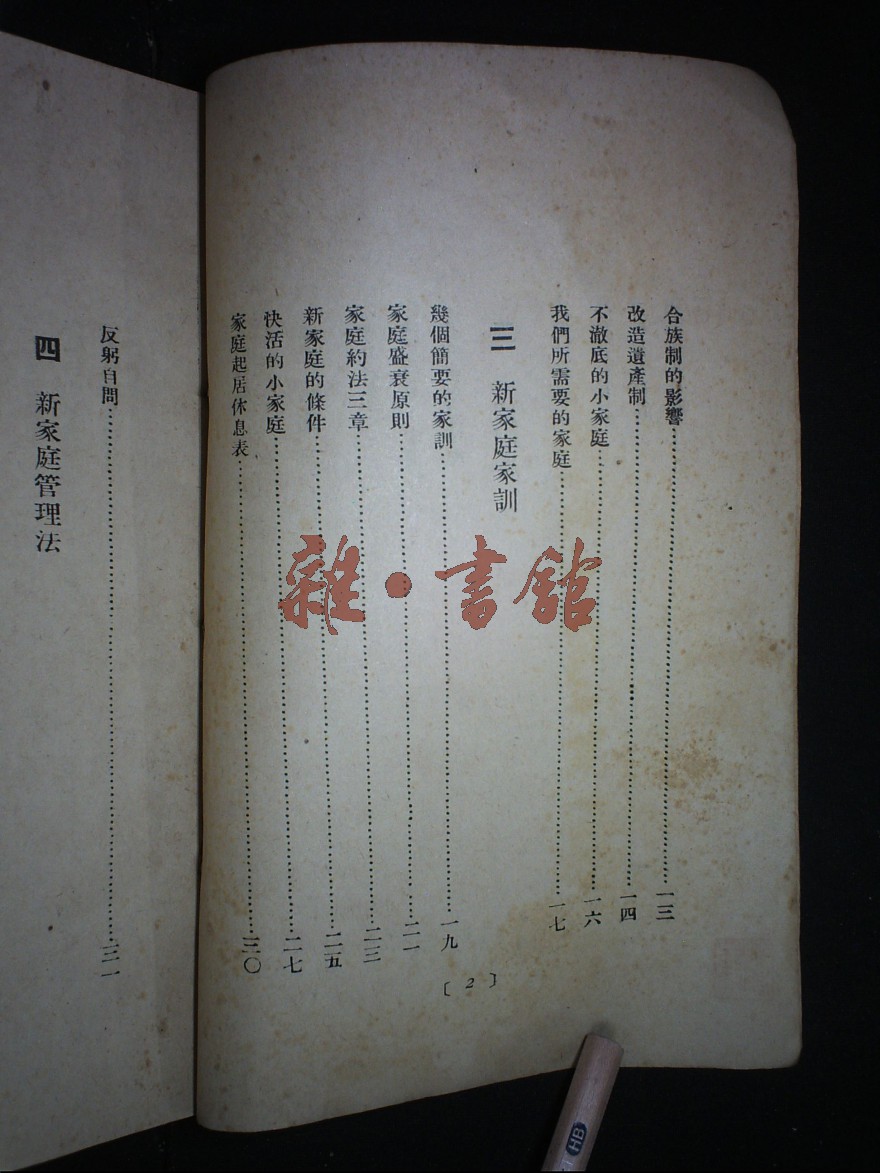 合族制的影響……一三
改造遺產制……一四
不澈底的小家庭……一六
我們所需要的家庭……一七
三 新家庭家訓
幾個簡要的家訓……一九
家庭盛衰原則……二一
家庭約法三章……二三
新家庭的條件……二五
快活的小家庭……二七
家庭起居休息表……三〇
〔2〕
反躬自問……三一
四 新家庭管理法
雜·書館
HB